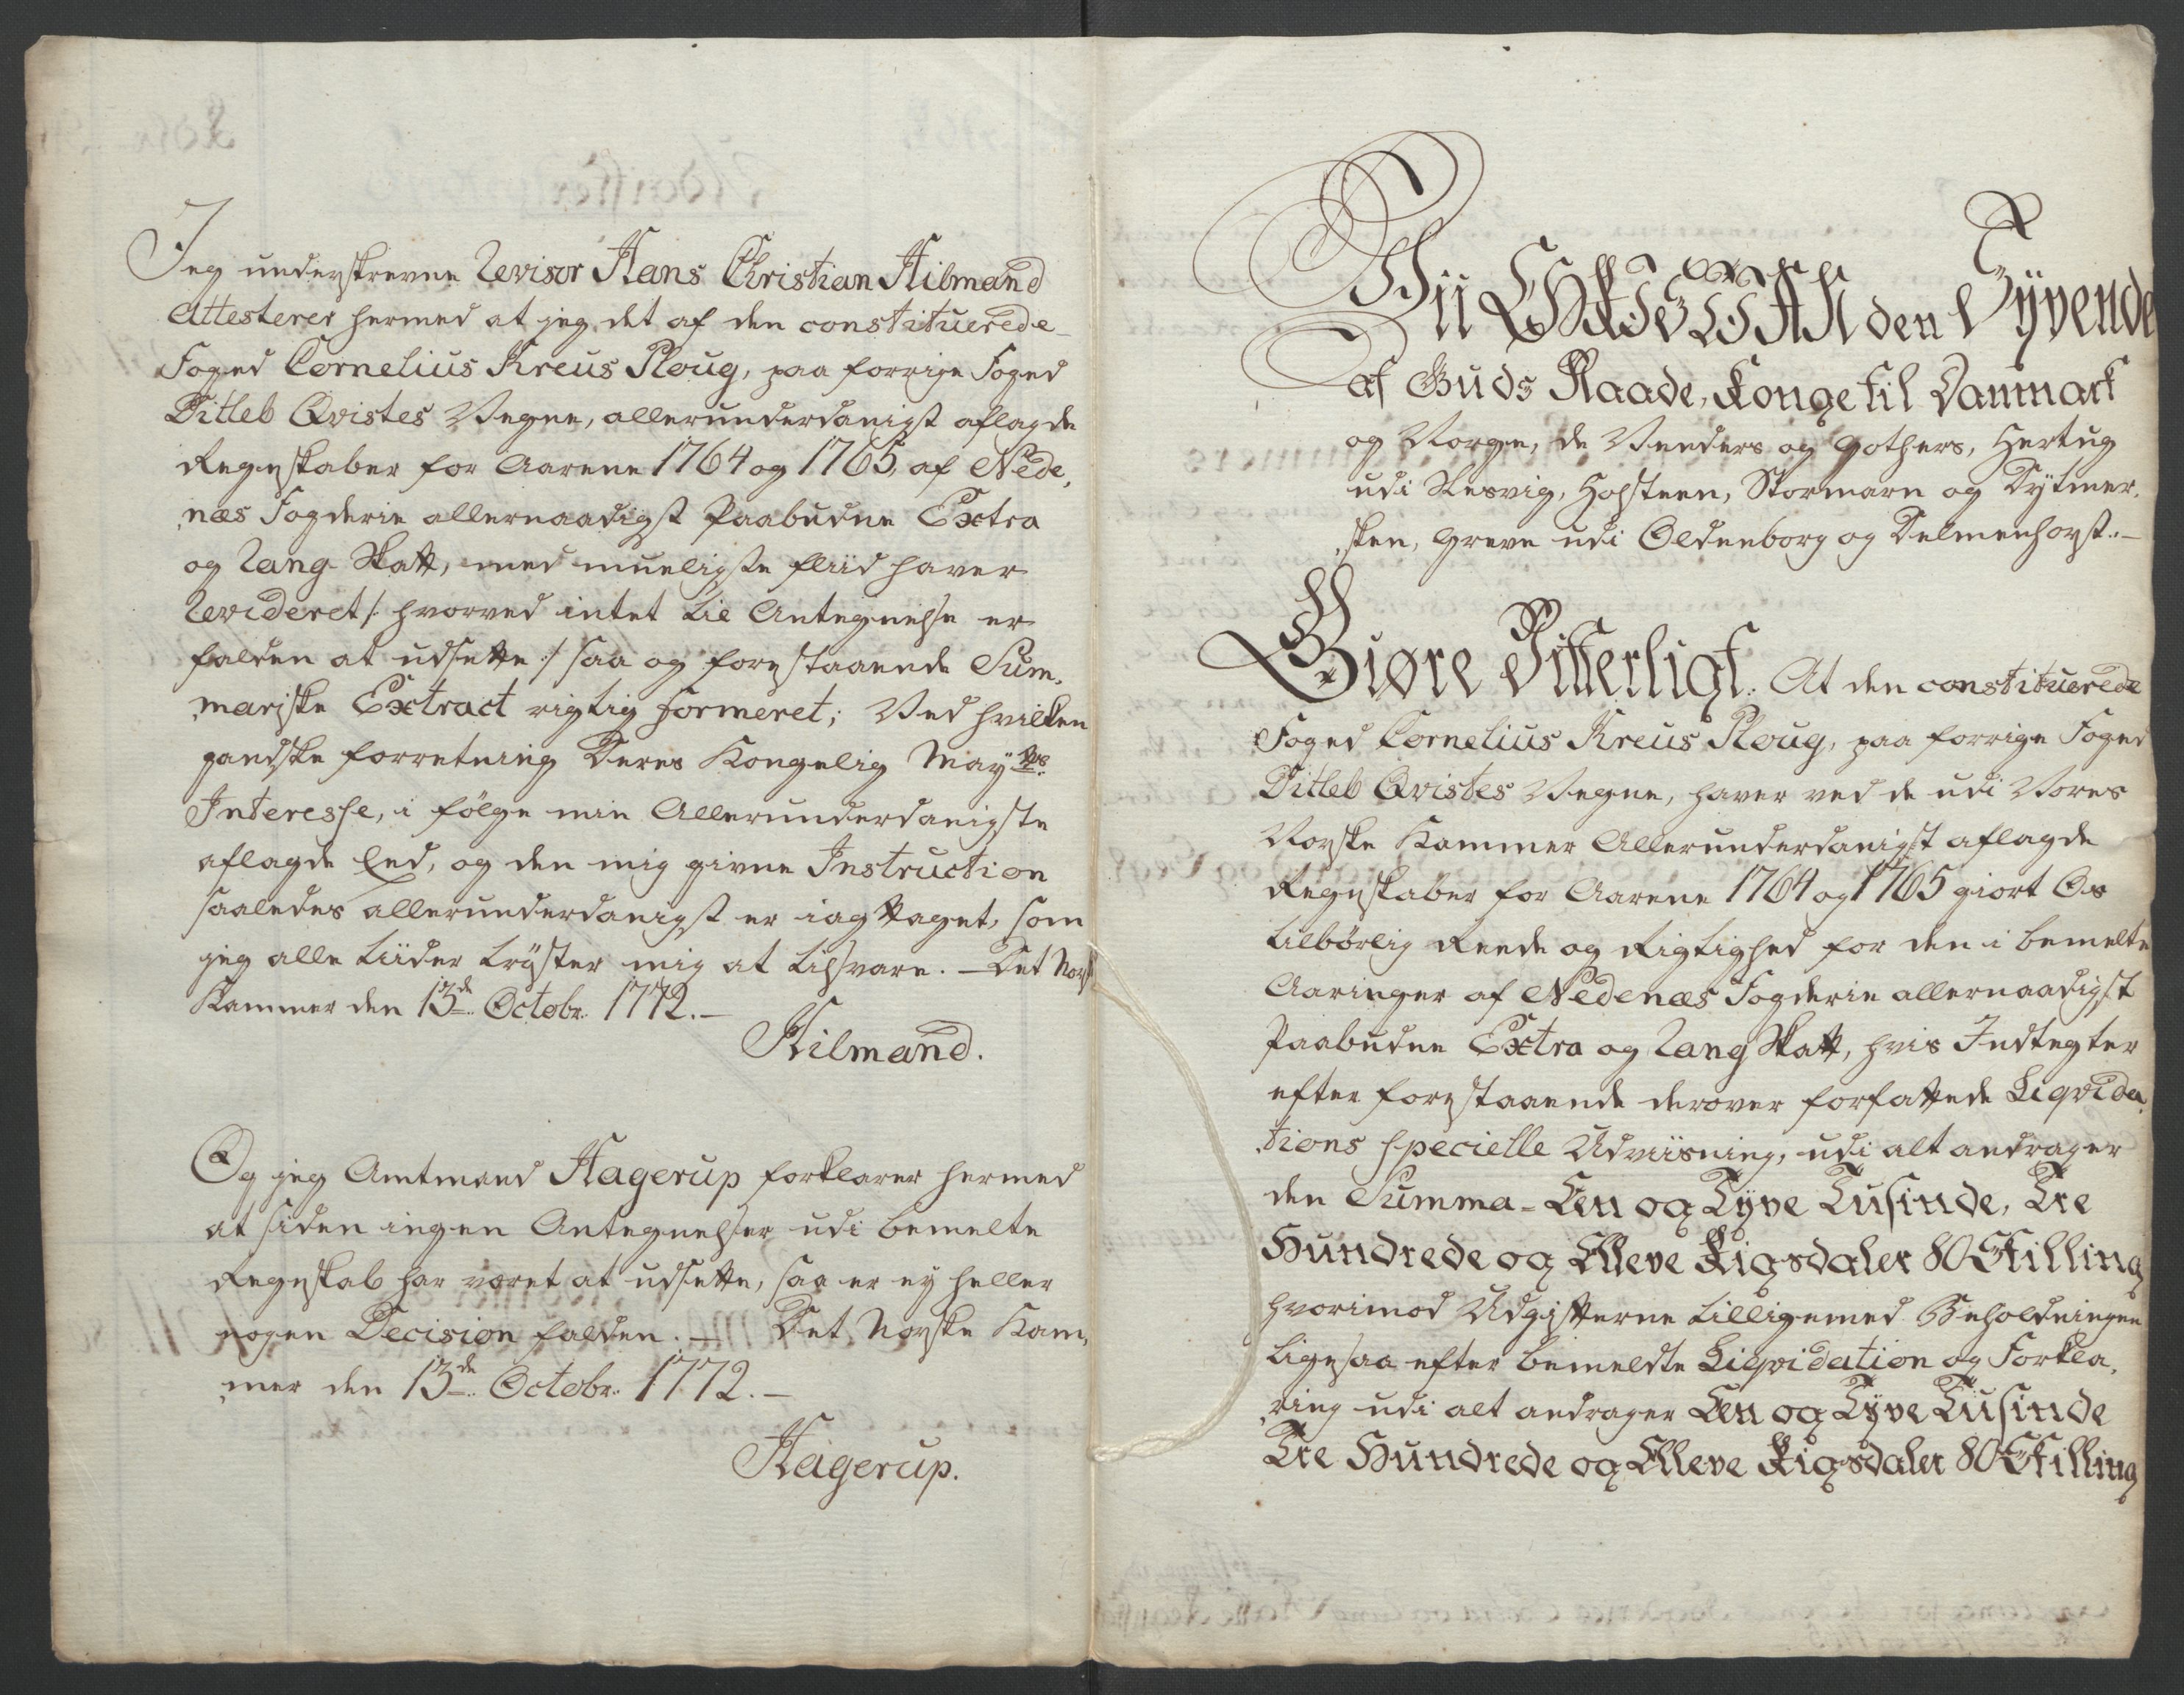 Jeg underskrevne Revisor Hans Christian Hilmand
Attesterer hermed at jeg det af den constituerede
Foged Cornelius Kreus Ploug, paa forrige Foged
Ditleb Qvistes Vegne, allerunderdanigst aflagde
Regnskaber for Aarene 1764 og 1765, af Nede,
næs Fogderie allernaadigst Paabudne Extra
og Rang Skatt, med mueligste fliid haver
Revideret /: hvorved intet til Antegnelse er
falden at udsette :/ saa og forestaaende Sum,
mariske Extract rigtig formeret; Ved hvilken
gandske forretning Deres Kongelig May.ts
Interesse, i følge min Allerunderdanigste
aflagde Eed, og den mig givne Instruction
saaledes allerunderdanigst er iagttaget, som
jeg alle tiider trøster mig at tilsvare. – Det Norske
Kammer den 13de Octobr. 1772. –
Hilmand.
Og jeg Amtmand Hagerup forklarer hermed
at siden ingen Antegnelser udi bemelte
Regnskab har været at udsette, saa er ey heller
nogen Decision falden. – Det Norske Kam,
mer den 13de Octobr. 1772. –
Hagerup.
Wii CHRISTIAN den Syvende
af Guds Naade, Konge til Danmark
og Norge, de Venders og Gothers, Hertug
udi Slesvig, Holsteen, Stormarn og Dytmer,
sken, Greve udi Oldenborg og Delmenhorst. –
Giøre Vitterligt: At den constituerede
Foged Cornelius Kreus Ploug, paa forrige Foged
Ditleb Qvistes Vegne, haver ved de udi Vores
Norske Kammer Allerunderdanigst aflagde
Regnskaber for Aarene 1764 og 1765 giort Os
tilbørlig Reede og Rigtighed for den i bemelte
Aaringer af Nedenæs Fogderie allernaadigst
Paabudne Extra og Rang Skatt, hvis Indtegter
efter forestaaende derover forfattede Liqvida,
tions specielle Udviisning, udi alt andrager
den Summa - Een og Tyve Tusinde, Tre
Hundrede og Elleve Rigsdaler 80 Skilling
hvorimod Udgifterne tilligemed Beholdningen
ligesaa efter bemeldte Liqvidation og Forkla,
ring udi alt andrager Een og Tyve Tusinde
Tre Hundrede og Elleve Rigsdaler 80 Skilling